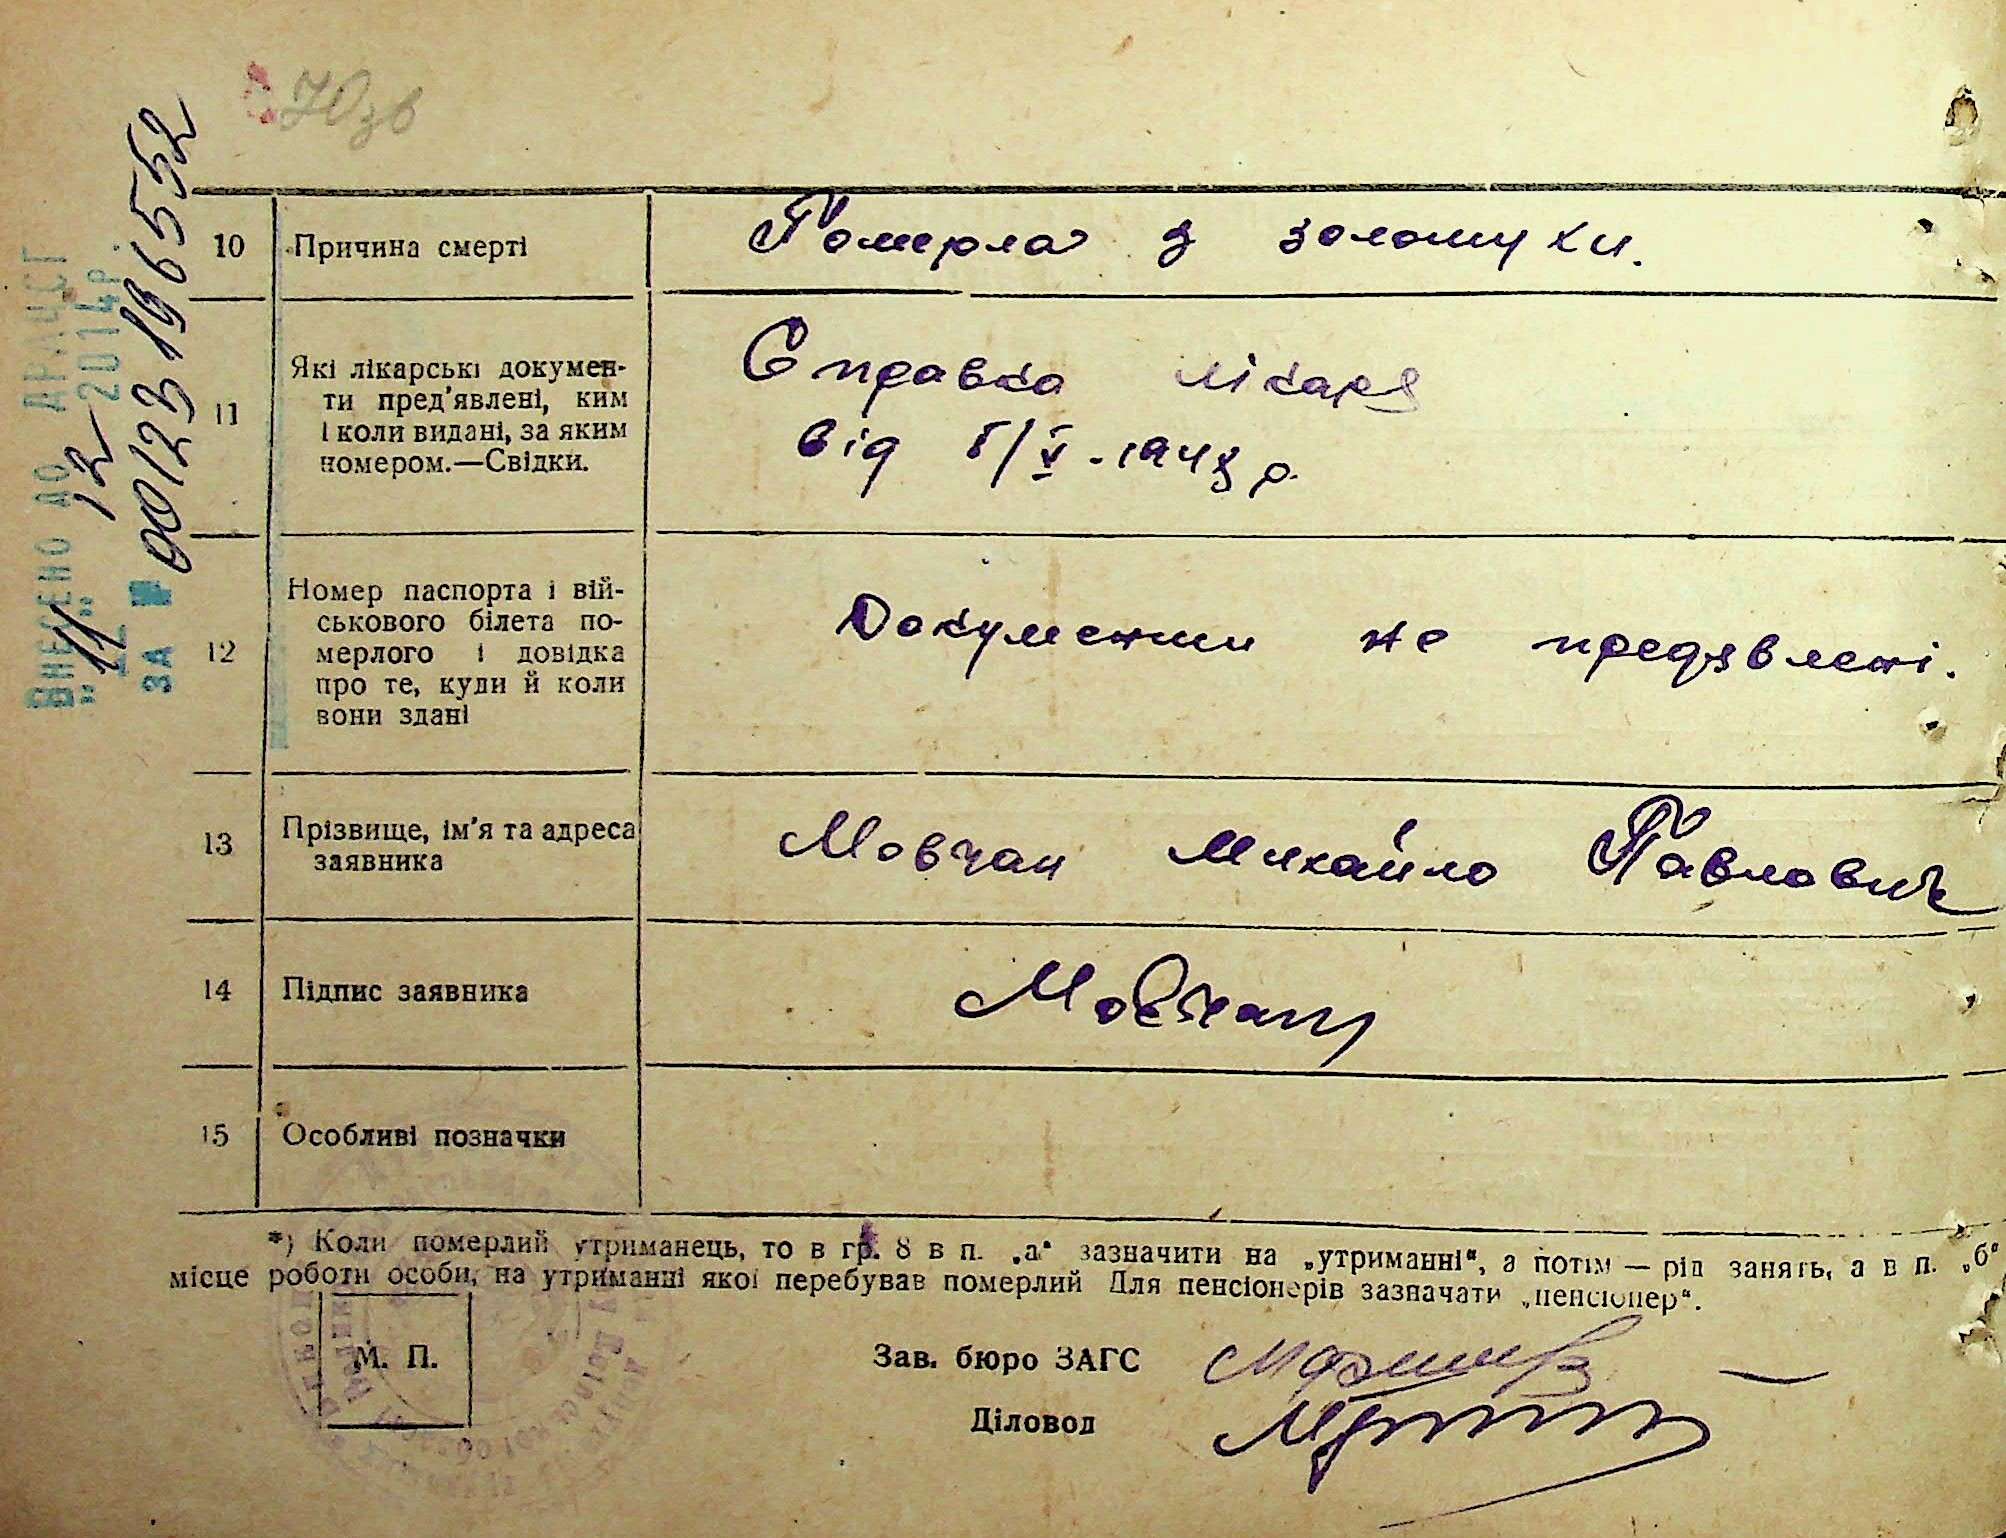 Юзв
ВНЕСЕНО ДО ДРАЦСГ
„11“ 12 2014р.
ЗА № 00123196552
10 Причина смерті
Померла з золотухи.
11 Які лікарські докумен-
ти пред'явлені, ким
і коли видані, за яким
номером.—Свідки.
Справка лікаря
від
12 Номер паспорта і вій-
ськового білета по-
мерлого і довідка
про те, куди й коли
вони здані
Документи не предявлені.
13 Прізвище, ім'я та адреса
заявника
Мовчан Михайло Павлович
14 Підпис заявника
Мовчан
15 Особливі позначки
*) Коли померлий утриманець, то в гр. 8 в п. „а“ зазначити на „утриманні“, а потім — рід занять, а в п. „б“
місце роботи особи, на утриманні якої перебував померлий Для пенсіонерів зазначати „пенсіонер“.
М. П.
Зав. бюро ЗАГС
Діловод